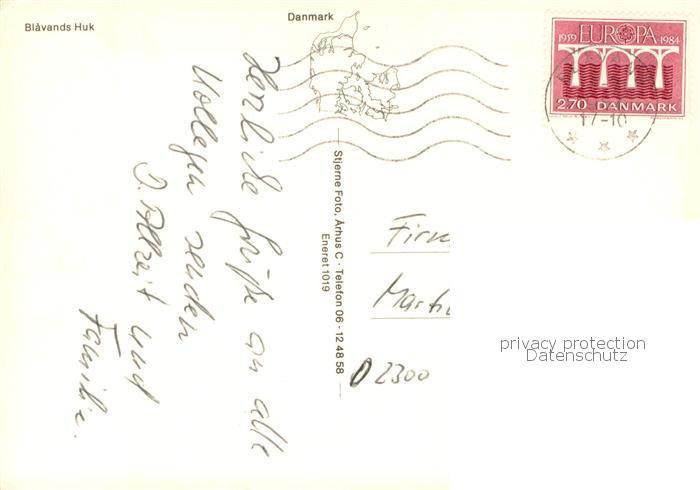 Blåvands Huk
Danmark
1959 EUROPA 1984
2.70 DANMARK
17-10
Herzliche Grüße an alle
Kollegen senden
und
Familie.
Stjerne Foto, Århus C · Telefon 06 - 12 48 58
Eneret 1019
Firm
Martin
D 2300
privacy protection
Datenschutz